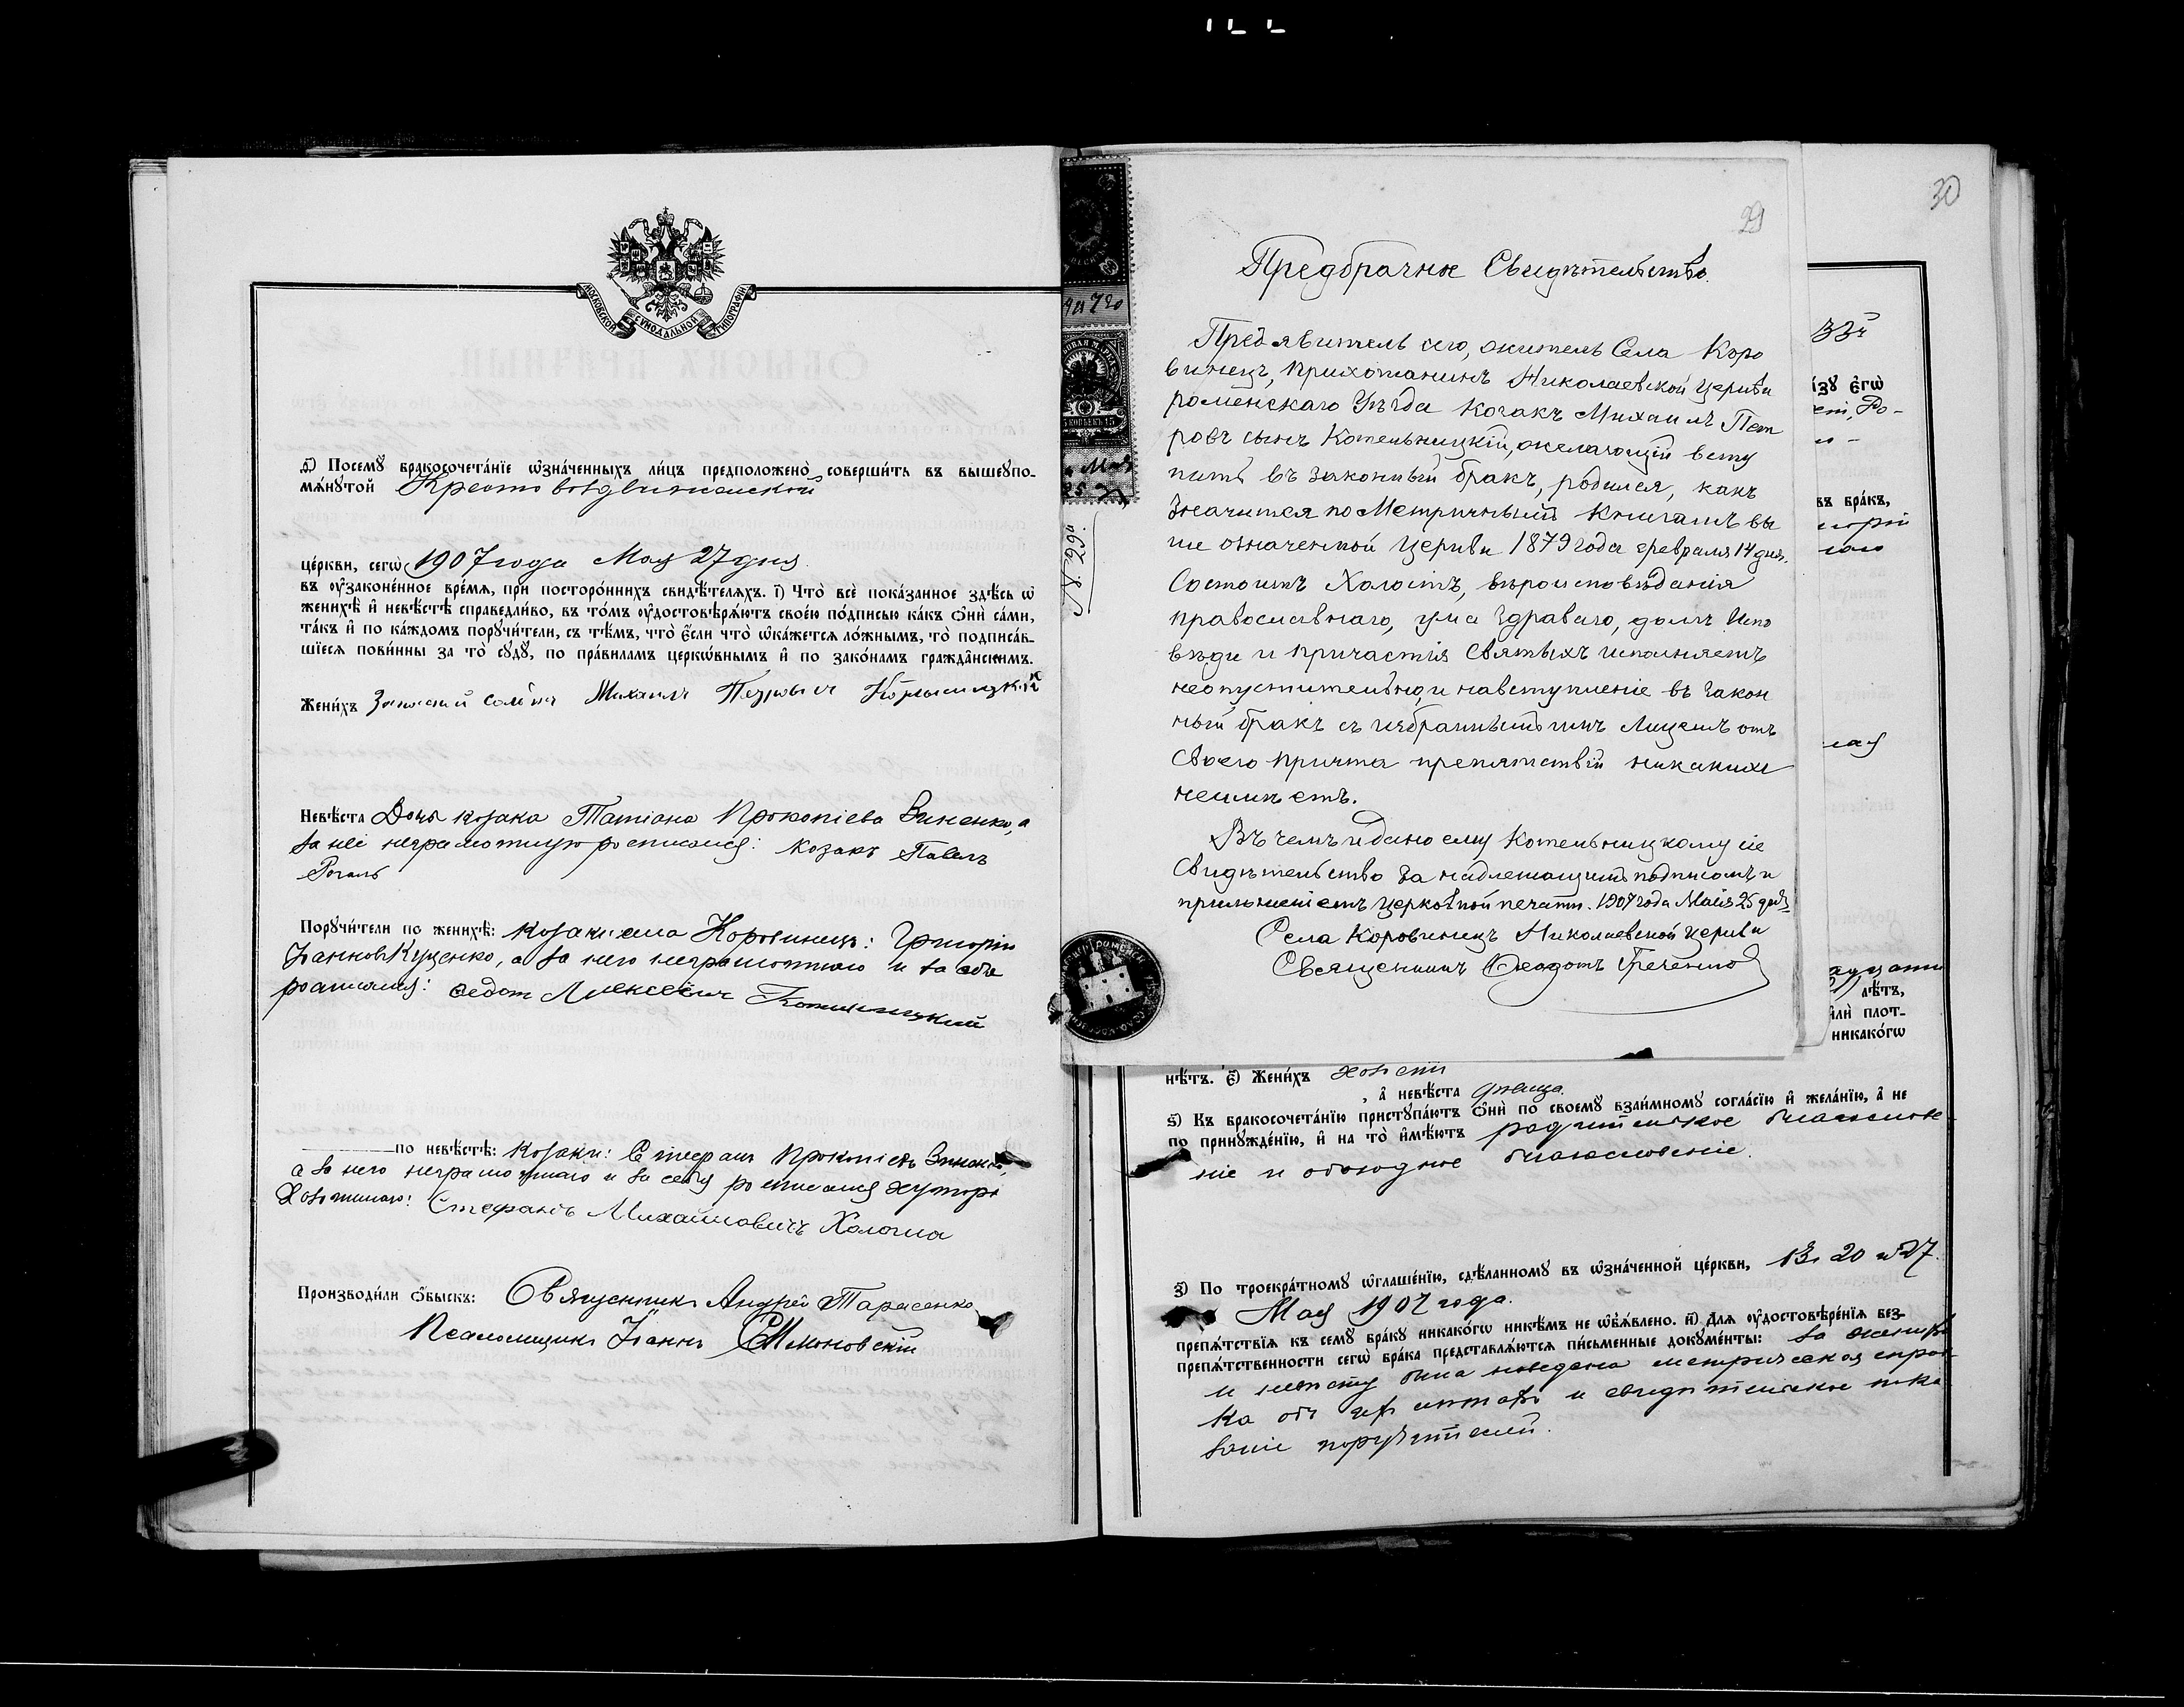 МОСКОВСКОЙ СѴНОДАЛЬНОЙ ТИПОГРАФІИ
д҃і) Посемꙋ̀ бракосочета́нїе ѡзна́ченныхъ ли́цъ предположено̀ соверши́ть въ вышеꙋпо-
мѧ́нꙋтой Крестовоздвиженской
це́ркви, сегѡ̀ 1907 года Мая 27 дня
въ ᲂу҆законе́нное вре́мѧ, при посторо́ннихъ свидѣ́телѧхъ. і҃) Что̀ всѐ пока́занное здѣ́сь ѡ҆
женихѣ̀ и҆ невѣ́стѣ справедли́во, въ то́мъ ᲂу҆достовѣрѧ́ютъ свое́ю по́дписью ка́къ ѻ҆нѝ са́ми,
та́къ и҆ по ка́ждомъ порꙋчи́тели, съ тѣ́мъ, что̀ є҆́сли что̀ ѡ҆ка́жетсѧ ло́жнымъ, то̀ подписа́в-
шїесѧ пови́нны за то̀ сꙋдꙋ̀, по пра́виламъ церко́внымъ и҆ по зако́намъ гражда́нскимъ.
Жени́хъ Запасный Михаилъ Петровичъ
Невѣ́ста Дочь козака Татіана Прокопіева Зиненко, а
за неё неграмотную росписался: козакъ Павелъ
Рогаль
Порꙋчи́тели по женихѣ̀: козаки села Коровинецъ: Григорій
Іоанновъ Куценко, а за него неграмотнаго и за себя
росписался: Федот Алексеевич Котельницкий
по невѣ́стѣ: козаки: Стефанъ Прокопіевъ Зиненко,
а за него неграмотнаго и за себя росписался хутора
Стефанъ Михайловичъ Хологма
Производи́ли ѻ҆́быскъ: Священникъ Андрей Тарасенко
Псаломщикъ Іоаннъ Симоновскій
29
Предбрачное Свидѣтельство.
Предъявитель сего, житель Села Коро
винецъ, прихожанинъ Николаевской Церкви
роменскаго Уѣзда козакъ Михаилъ Пет
ровъ сынъ Котельницкій, желающій всту
пить въ законный бракъ, родился, какъ
значится по Метричнымъ Книгамъ вы
ше означенной Церкви 1879 года февраля 14 дня.
Состоитъ Холостъ, вѣроисповѣданія
православнаго, ума здраваго, долгъ Испо
вѣди и причастія Святыхъ исполняетъ
неопустительно, и на вступленіе въ закон
ный бракъ съ избраннымъ имъ Лицемъ отъ
своего причта препятствій никакихъ
неимѣетъ.
Въ чемъ и дано ему Котельницкому сіе
Свидѣтельство за надлежащимъ подписомъ и
приложеніемъ церковной печати. 1907 года Маія 25 дня.
Села Коровинецъ Николаевской церкви
Священникъ Феодотъ Греченко
N. 299.
30
33й
є҆гѡ̀
въ бра́къ,
лѣ́тъ,
и҆лѝ плот-
никако́гѡ
нѣ́тъ. є҃) Жени́хъ холостъ
, а҆ невѣ́ста дѣвица.
ѕ҃) Къ бракосочета́нїю пристꙋпа́ютъ ѻ҆нѝ по своемꙋ̀ взаи́мномꙋ согла́сїю и҆ жела́нїю, а҆ не
по принꙋжде́нїю, и҆ на то̀ и҆мѣ́ютъ родительское благослове-
ніе и обоюдное благословеніе.
з҃) По троекра́тномꙋ ѡ҆глаше́нїю, сдѣ́ланномꙋ въ ѡ҆зна́ченной це́ркви, 13, 20 и 27.
Мая 1907 года.
препѧ́тствїѧ къ семꙋ̀ бра́кꙋ никако́гѡ никѣ́мъ не ѡ҆б̾ѧ́влено. и҃) Длѧ ᲂу҆достовѣре́нїѧ без-
препѧ́тственности сегѡ̀ бра́ка представлѧ́ютсѧ пи́сьменные докꙋме́нты: за жениха
и невѣсту была наведена метрическая справ-
ка объ ихъ лѣтахъ и свидѣтельское пока
заніе поручителей.